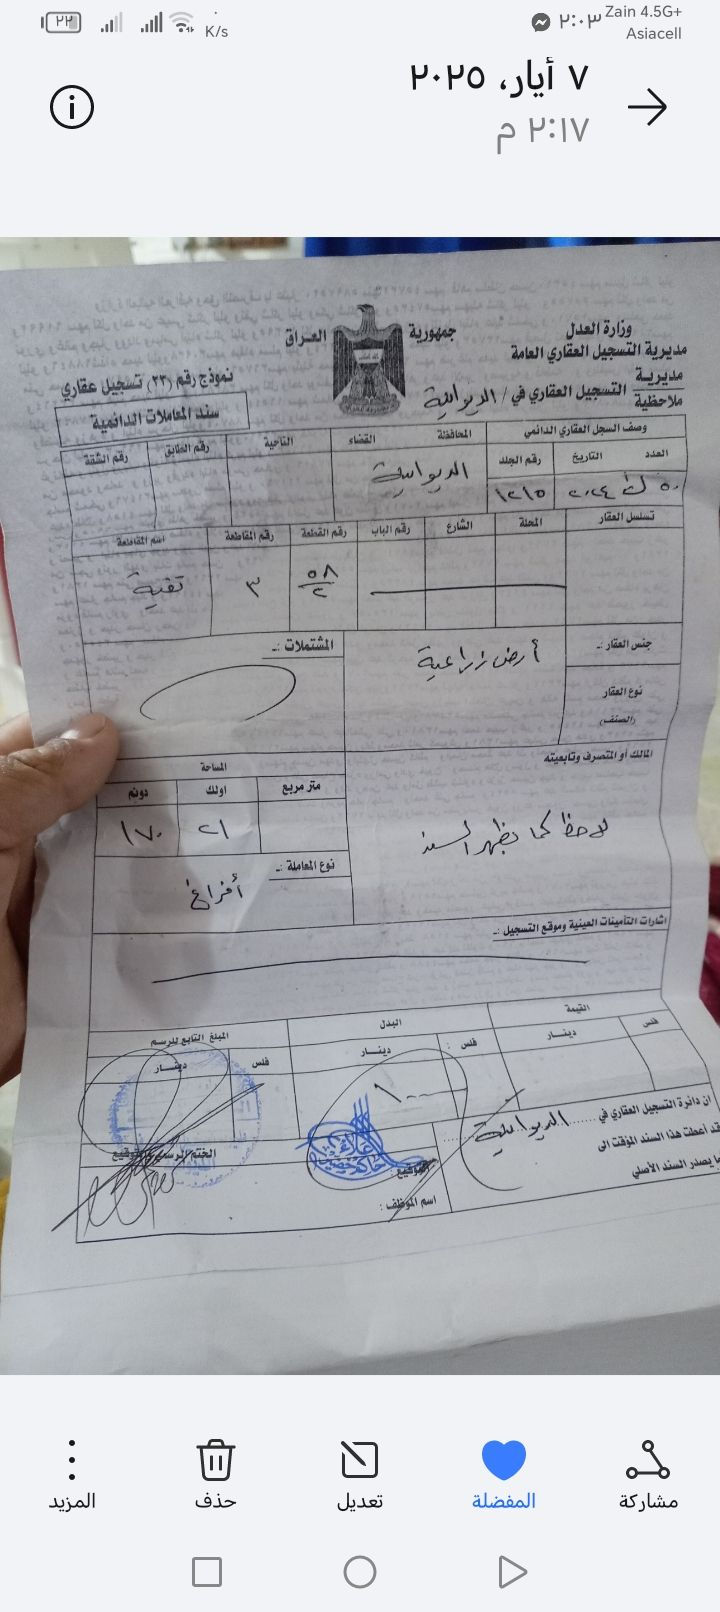 Zain 4.5G+
Asiacell
٢:٠٣
K/s
٢٢
٧ أيار، ٢٠٢٥
٢:١٧ م
وزارة العدل
مديرية التسجيل العقاري العامة
مديرية
ملاحظية
التسجيل العقاري في / الديوانية
جمهورية العراق
نموذج رقم (٢٣) تسجيل عقاري
سند المعاملات الدائمية
وصف السجل العقاري الدائمي
المحافظة
القضاء
الناحية
رقم الطابق
رقم الشقة
العدد
التاريخ
رقم الجلد
الديوانية
٥٠
٢٠٢٤
١٢١٥
تسلسل العقار
المحلة
الشارع
رقم الباب
رقم القطعة
رقم المقاطعة
اسم المقاطعة
٥٨
٢
٣
جنس العقار :ـ
أرض زراعية
المشتملات :ـ
نوع العقار
(الصنف)
المالك أو المتصرف وتابعيته
المساحة
متر مربع
اولك
دونم
٢١
١٧٠
لاحظ كما يظهر السند
نوع المعاملة :ـ
أفراغ
اشارات التأمينات العينية وموقع التسجيل :ـ
القيمة
البدل
المبلغ التابع للرسم
فلس
دينــار
فلس :
دينــار
فلس
دينــار
ان دائرة التسجيل العقاري في ...... الديوانية
قد أعطت هذا السند المؤقت الى
ما يصدر السند الأصلي
التوقيع :
اسم الموظف :
الختم الرسمي والتوقيع
مشاركة
المفضلة
تعديل
حذف
المزيد